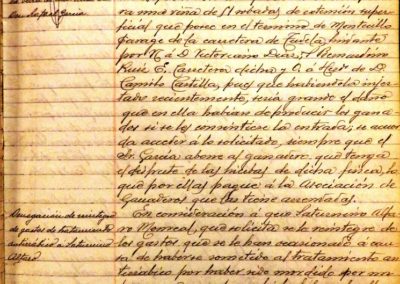 ra una viña de 51 robadas de extensión super-
ficial que posee en el termino de Montecillo
Garage de la carretera de Tudela, linfante
por N. a D. Victoriano Diaz, S.
Ruiz E. Carretera dicha y O. a Hers de D.
Camilo Castilla, pues que habiendola injer-
tado recientemente, seria grande el daño
que en ella habian de producir los gana-
dos si se les consintiese la entrada; se acuer-
da acceder á lo solicitado, siempre que el
Sr. Garcia abone al ganadero que tenga
el disfrute de las hierbas de dicha finca, lo
que por ellas pague á la Asociacion de
Ganaderos que las tiene arrendadas.
Denegacion de reintegro
de gastos de tratamiento
antirrabico a Saturnino
Alfaro
En consideración á que Saturnino Alfa-
ro Monreal, que solicita se le reintegre de
los gastos que se le han ocasionado á cau-
sa de haberse sometido al tratamiento an-
tirrabico por haber sido mordido por un